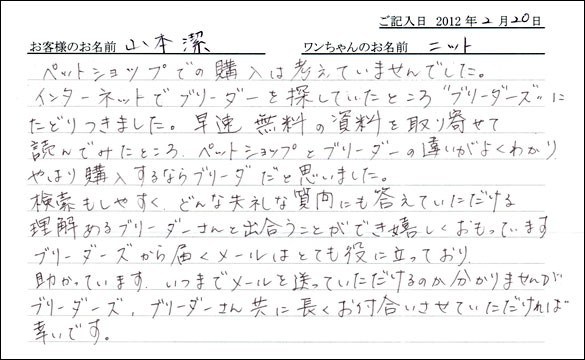 ご記入日 2012年2月20日
お客様のお名前 山本 潔 ワンちゃんのお名前 ニット
ペットショップでの購入は考えていませんでした。
インターネットでブリーダーを探していたところ"ブリーダーズ"に
たどりつきました。早速 無料の資料を取り寄せて
読んでみたところ、ペットショップとブリーダーの違いがよくわかり
やはり購入するならブリーダだと思いました。
検索もしやすく、どんな失礼な質問にも答えていただける
理解あるブリーダーさんと出合うことができ嬉しくおもっています
ブリーダーズから届くメールはとても役に立っており、
助かっています。いつまでメールを送っていただけるのか分かりませんが
ブリーダーズ、ブリーダーさん共に長くお付合いさせていただければ
幸いです。